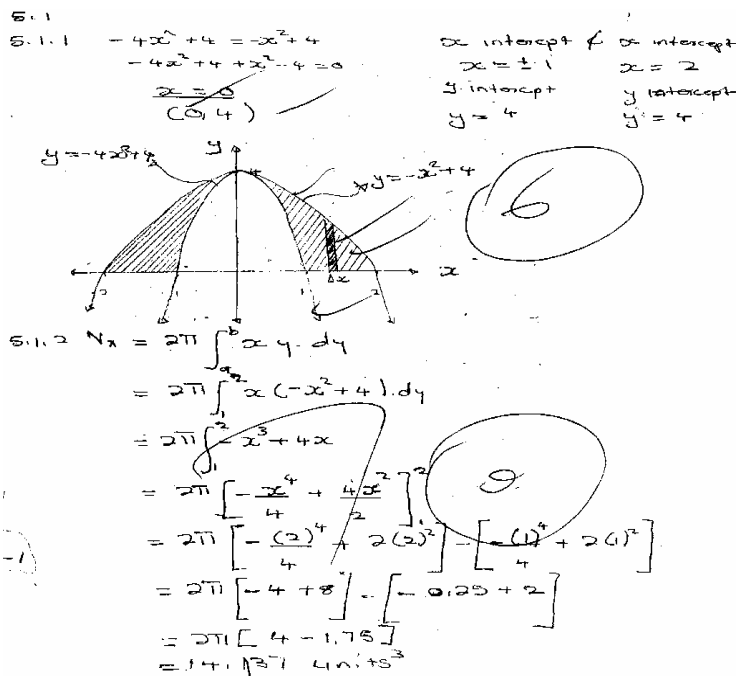 5.1
5.1.1 -4x² + 4 = -x² + 4
-4x² + 4 + x² - 4 = 0
x = 0
(0, 4)
x intercept & x intercept
x = ± 1 x = 2
y intercept y intercept
y = 4 y = 4
y = -4x² + 4
y
4
y = -x² + 4
6
x
-2 -1 1 Δx 2
5.1.2 Vx = 2π ∫ₐᵇ x y · dy
= 2π ∫₁² x (-x² + 4) . dy
= 2π ∫₁² - x³ + 4x
= 2π [ - x⁴/4 + 4x²/2 ]₁²
0
= 2π [ - (2)⁴/4 + 2(2)² ] - [ - (1)⁴/4 + 2(1)² ]
-1
= 2π [ -4 + 8 ] - [ - 0,25 + 2 ]
= 2π [ 4 - 1,75 ]
= 14,137 units³